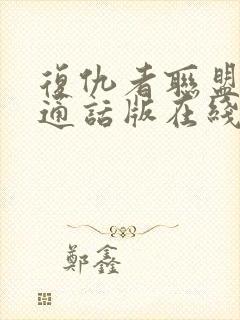 復仇者聯盟
通話版在綫
鄭鑫